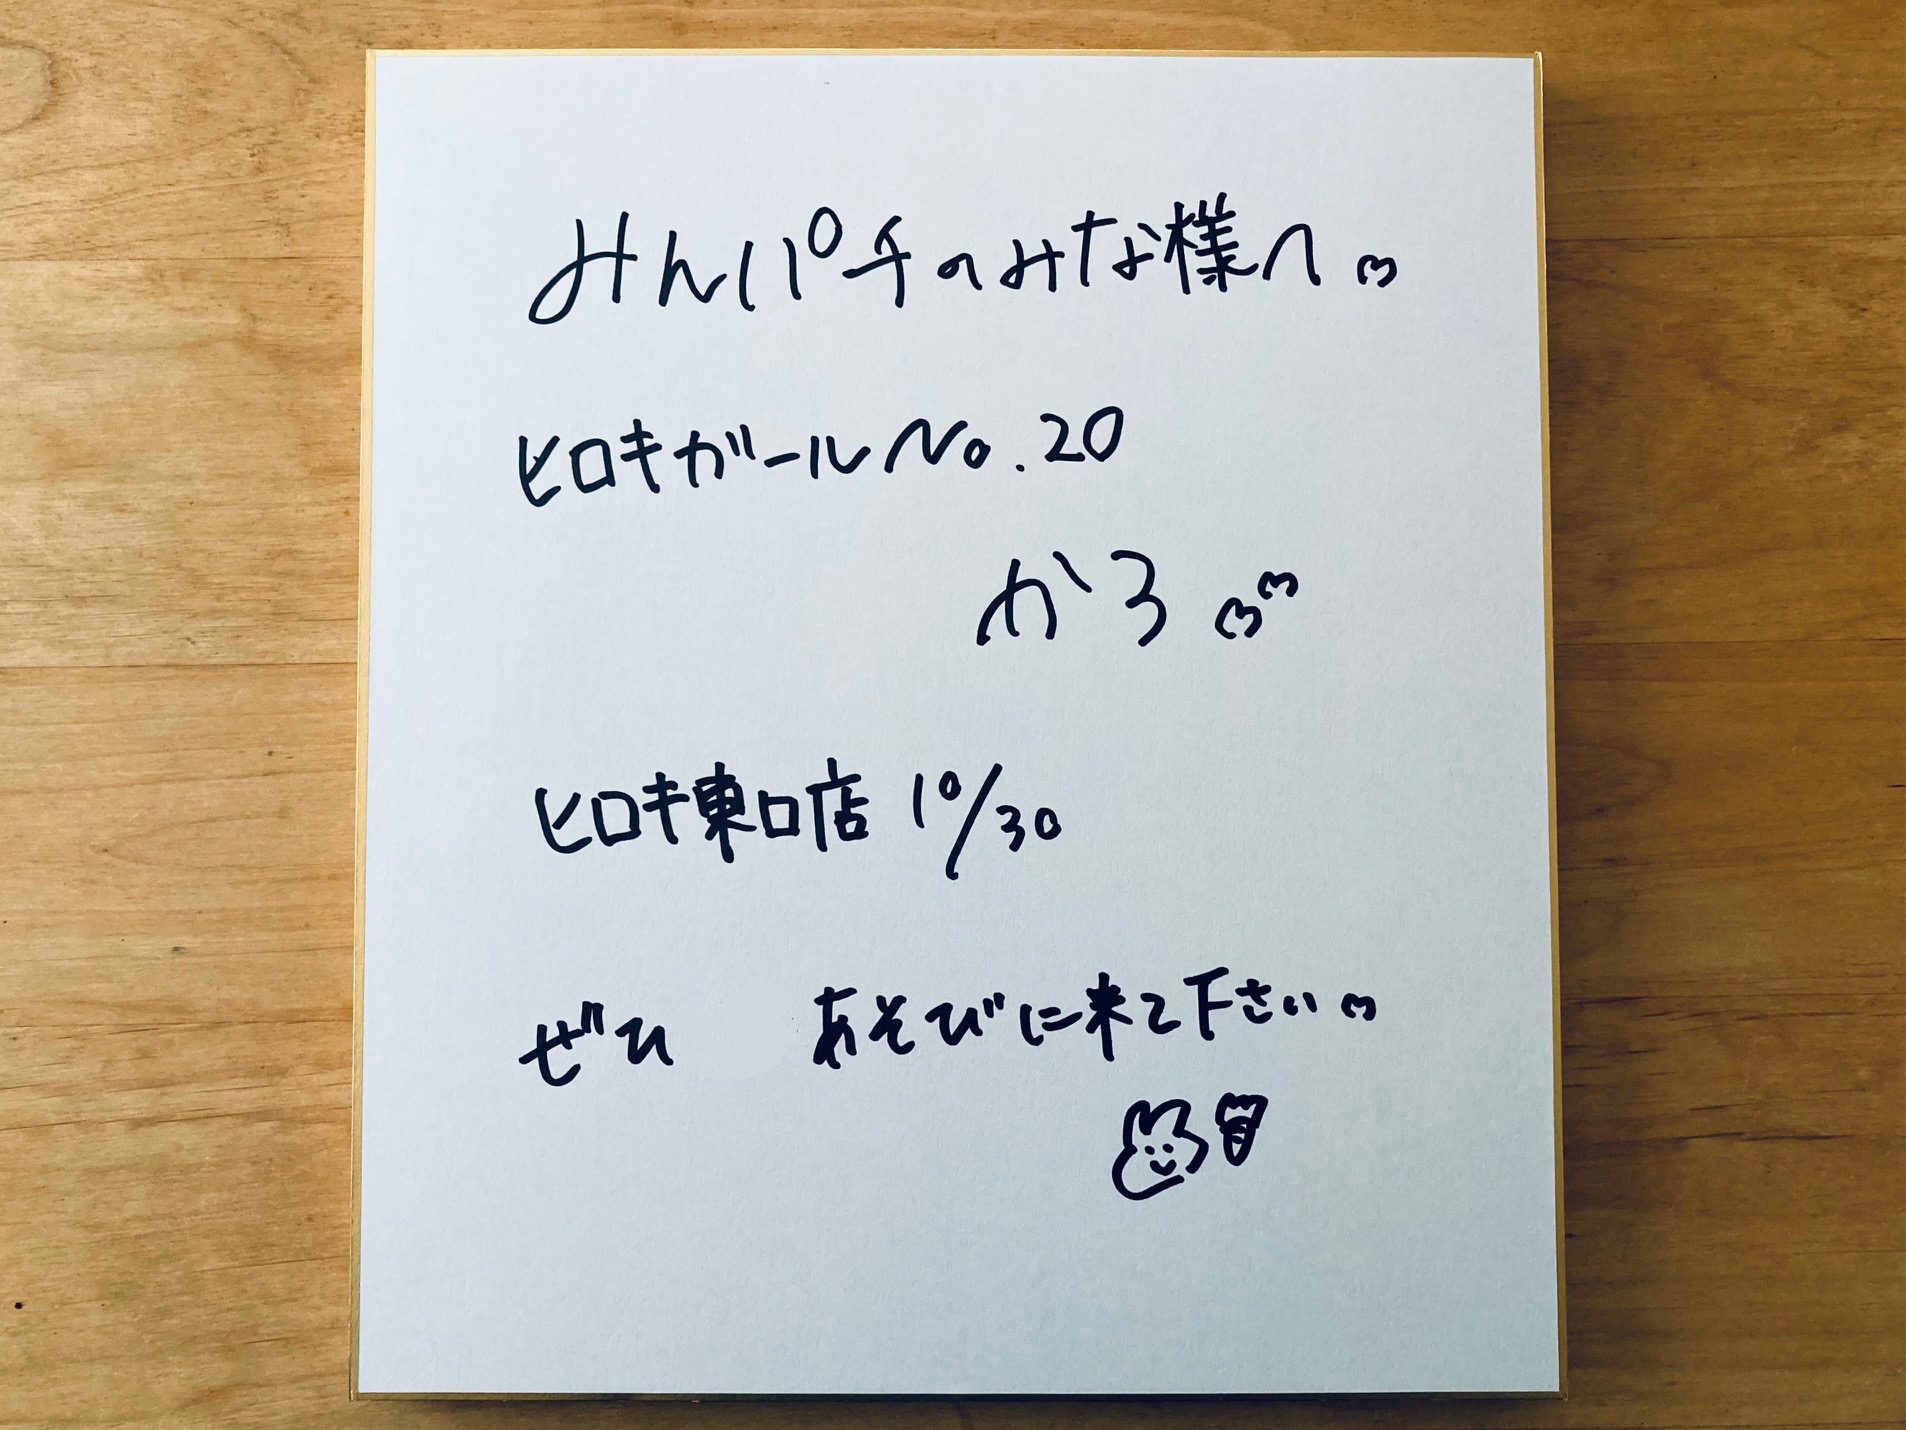 みんパチのみな様へ
ヒロキガールNo.20
かろ
ヒロキ東口店 10/30
ぜひ あそびに来て下さい